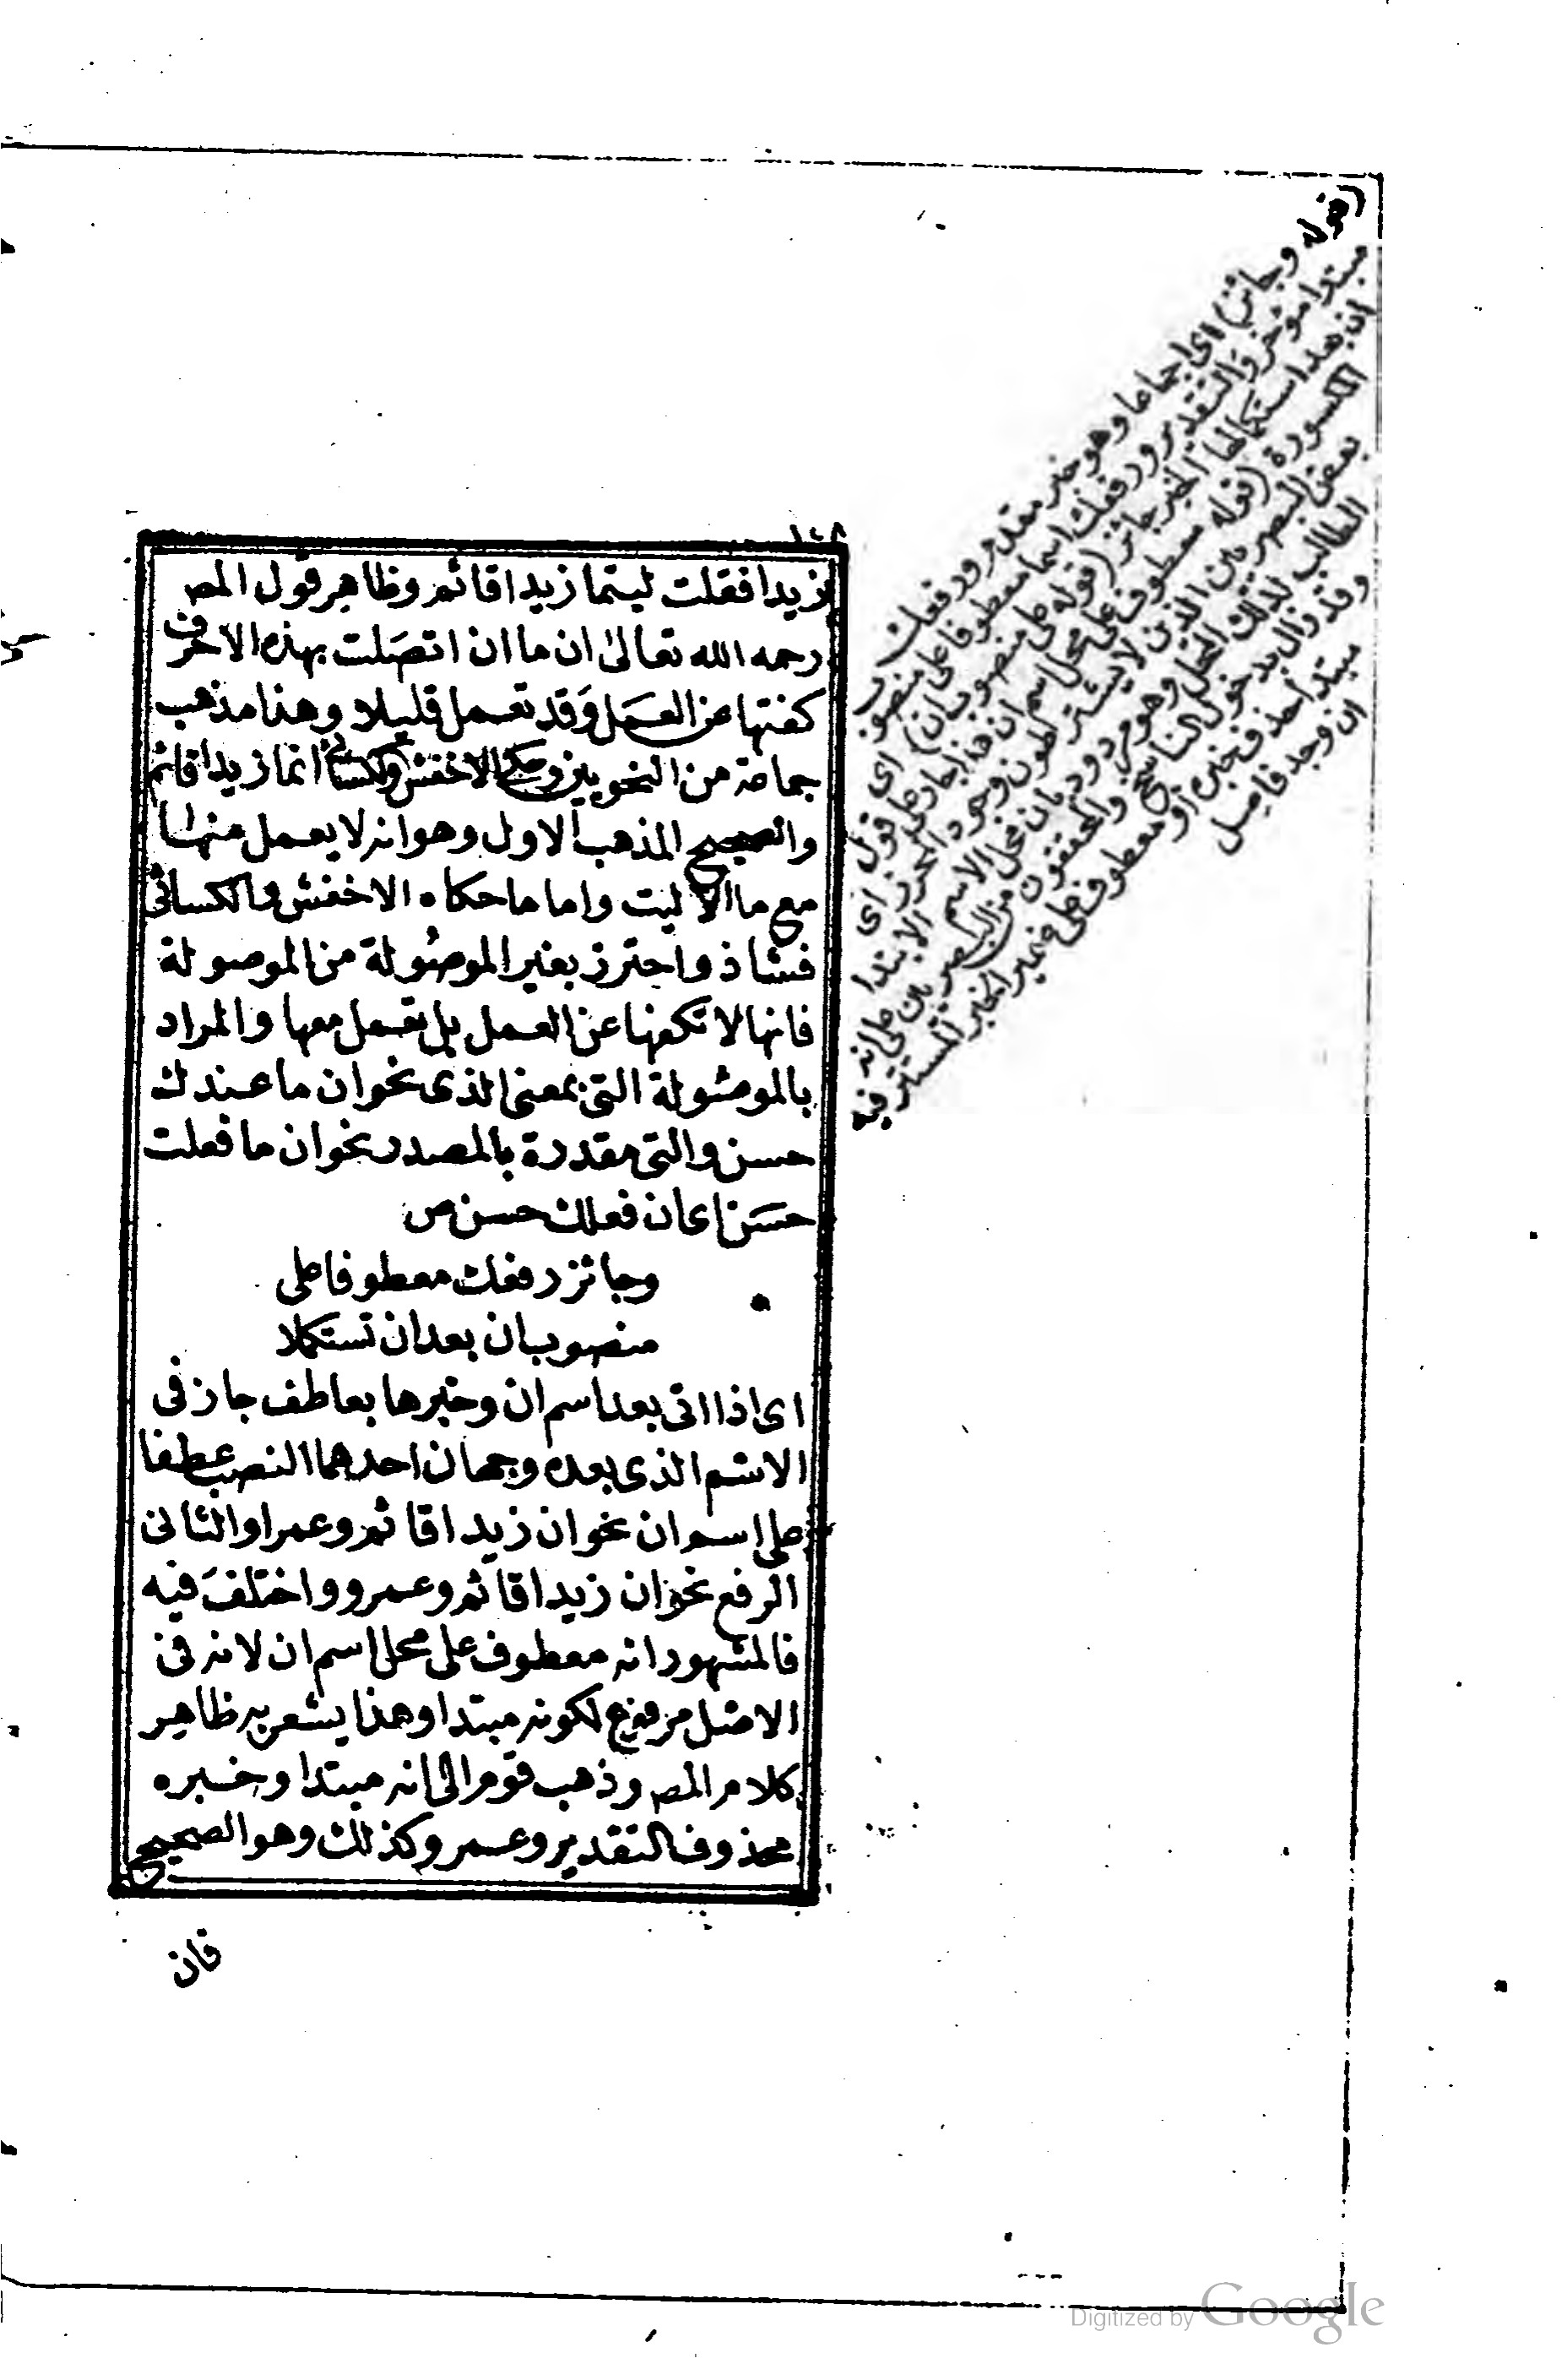 ١٤٨
زيدا فقلت ليتما زيدا قائم وظاهر قول المص
رحمه الله تعالىٰ ان ما ان اتصَلت بهذه الاحرف
كفتها عن العمَل وَقد تعمل قليلا وهذا مذهب
جماعة من النحويين وحكى الاخفش والكسائى انما زيدا قائم
والصحيح المذهب الاول وهو انه لا يعمل منها
مع ما الا ليت واما ما حكاه الاخفش والكسائى
فشاذ واحترز بغير الموصُولة من الموصولة
فانها لا تكفها عن العمل بل تعمل معها والمراد
بالموصُولة التى بمعنى الذى نحو ان ما عندك
حسن والتى مقدرة بالمصدر نحو ان ما فعلت
حسَن اى ان فعلك حسن ص
وجائز رفعك معطوفا على
منصوب ان بعد ان تستكملا
اى اذا اتى بعد اسم ان وخبرها بعاطف جاز فى
الاسم الذى بعده وجهان احدهما النصب عطفا
على اسم ان نحو ان زيدا قائم وعمرا والثانى
الرفع نحو ان زيدا قائم وعمرو واختلفَ فيه
فالمشهور انه معطوف على محل اسم ان لانه فى
الاصل مرفوع لكونه مبتدا وهذا يشعر به ظاهر
كلام المص وذهب قوم الى انه مبتدا وخبره
محذوف التقدير وعمرو كذلك وهو الصحيح
فان
(قوله وجائز) اى اجماعا وهو خبر مقدم ورفعك
مبتدا مؤخر والتقدير ورفعك اسما معطوفا على منصوب
ان بعد استكمالها الخبر جائز (قوله على منصوب ان) اى
المكسورة (قوله معطوف على محل اسم ان) هذا على قول
بعض البصريين الذين لا يشترطون وجود المحرز اى
الطالب لذلك المحل وهو مردود بان محل الاسم الابتدا
وقد زال بدخول الناسخ والمحققون من البصريين على انه
مبتدا حذف خبره او معطوف على ضمير الخبر المستتر فيه
ان وجد فاصل
Digitized by Google